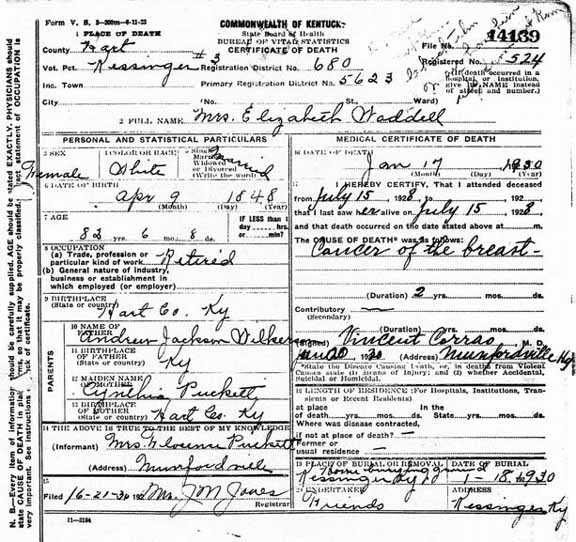 Form V. S. 5-300m-4-11-23
COMMONWEALTH OF KENTUCKY
State Board of Health
BUREAU OF VITAL STATISTICS
CERTIFICATE OF DEATH
1 PLACE OF DEATH
County Hart
Vot. Pct. Kessinger #3 Registration District No. 680
Inc. Town Primary Registration District No. 5623
City (No. St., Ward)
File No. 14139
Registered No. 524
(If death occurred in a hospital or institution, give its NAME instead of street and number.)
2 FULL NAME Mrs. Elizabeth Waddell
PERSONAL AND STATISTICAL PARTICULARS
3 SEX Female
4 COLOR OR RACE White
5 Single Married Widowed or Divorced (Write the word)
6 DATE OF BIRTH Apr 9 1848
(Month) (Day) (Year)
7 AGE 82 yrs. 6 mos. 8 ds.
IF LESS than 1 day hrs. or min?
8 OCCUPATION
(a) Trade, profession or particular kind of work Retired
(b) General nature of industry, business or establishment in which employed (or employer)
9 BIRTHPLACE (State or country) Hart Co. Ky
PARENTS
10 NAME OF FATHER Andrew Jackson
11 BIRTHPLACE OF FATHER (State or country) Ky
12 MAIDEN NAME OF MOTHER Cynthia Puckett
13 BIRTHPLACE OF MOTHER (State or country) Hart Co. Ky
14 THE ABOVE IS TRUE TO THE BEST OF MY KNOWLEDGE
(Informant) Mrs. Florence Puckett
(Address) Munfordville
15
Filed 192 Mrs. J M Jones
Registrar
11-3184
MEDICAL CERTIFICATE OF DEATH
16 DATE OF DEATH Jan 17 1930
(Month) (Day) (Year)
17 I HEREBY CERTIFY, That I attended deceased
from July 15, 1928, to 192
that I last saw her alive on July 15 1928,
and that death occurred on the date stated above at m.
The CAUSE OF DEATH* was as follows:
Cancer of the breast
(Duration) 2 yrs. mos. ds.
Contributory (Secondary)
(Duration) yrs. mos. ds.
(Signed) Vincent Corrao M. D.
Jan 20 1930 (Address) Munfordville Ky
*State the Disease Causing Death, or, in deaths from Violent Causes state (1) Means of Injury; and (2) whether Accidental, Suicidal or Homicidal.
18 LENGTH OF RESIDENCE (For Hospitals, Institutions, Transients or Recent Residents)
at place of death yrs. mos. ds. In the State yrs. mos. ds.
Where was disease contracted,
if not at place of death?
Former or usual residence
19 PLACE OF BURIAL OR REMOVAL
burying ground
Kessinger Ky
DATE OF BURIAL
1-18-1930
20 UNDERTAKER Friends
ADDRESS Kessinger Ky